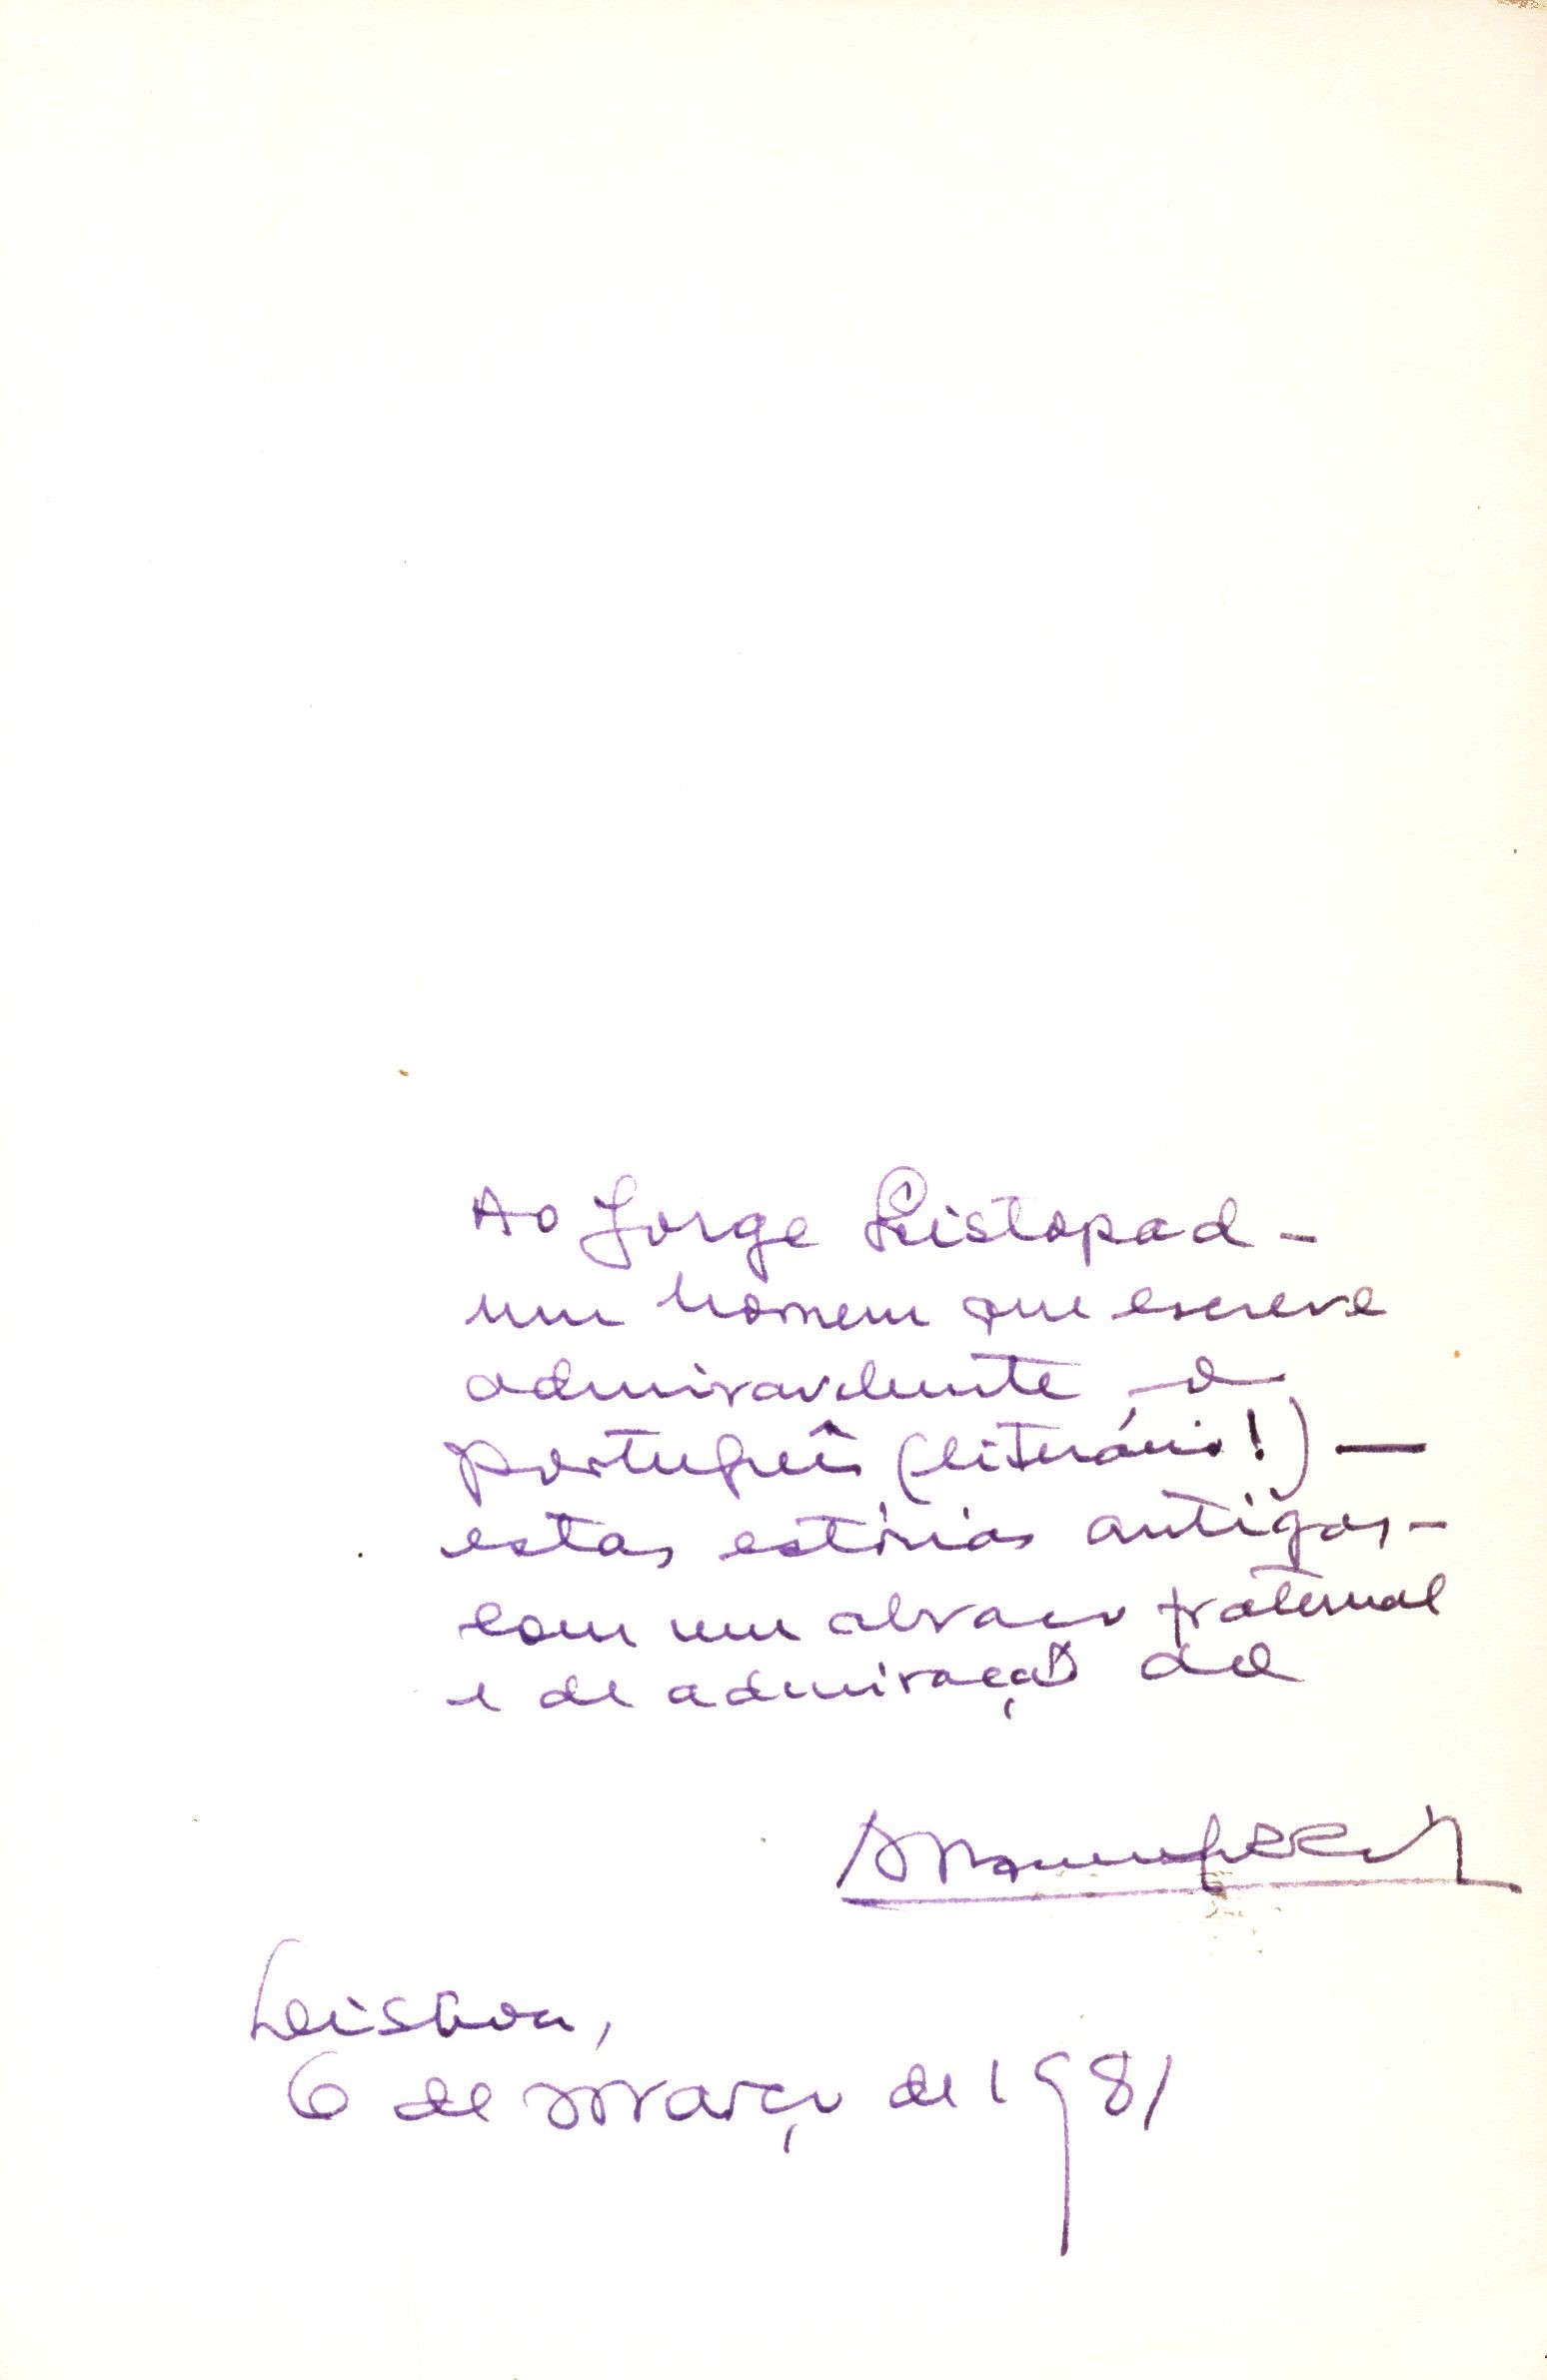 Ao Jorge Listopad –
um homem que escreve
admiravelmente o
português (literário!) —
estas estórias antigas –
com um abraço fraternal
e de admiração do
Lisboa,
6 de Março de 1981